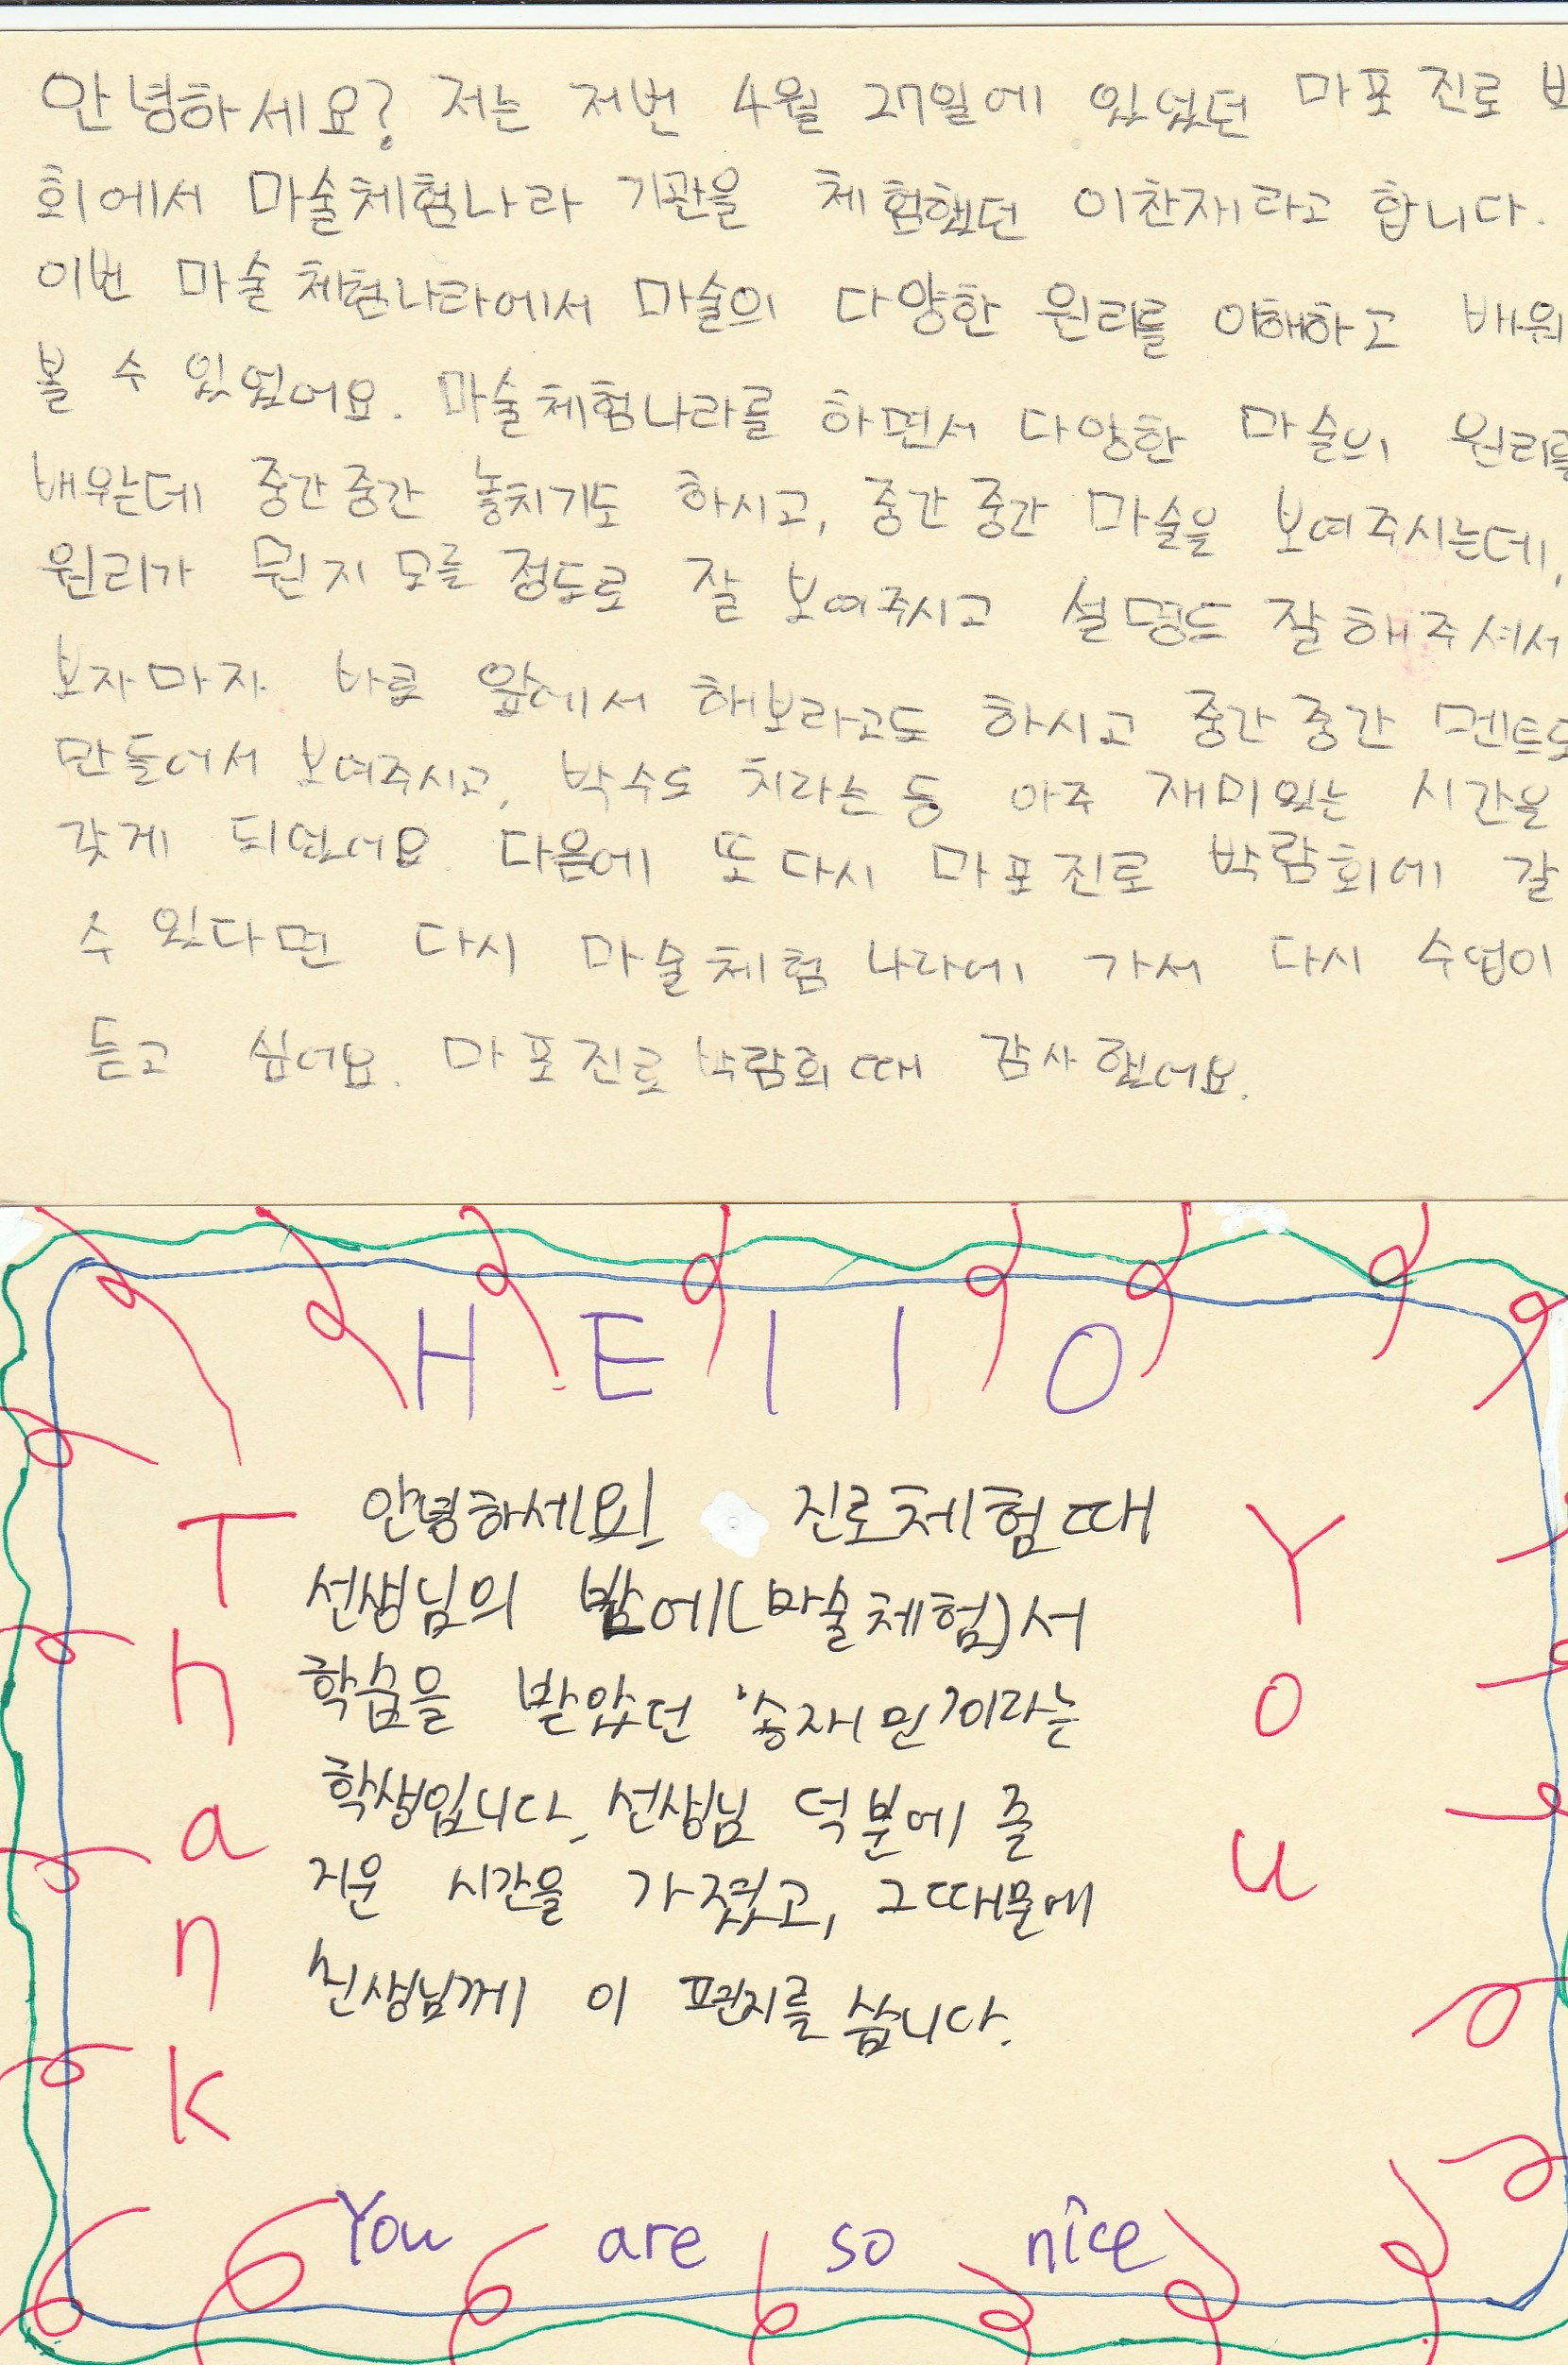 안녕하세요? 저는 저번 4월 27일에 있었던 마포 진로
회에서 마술체험나라 기관을 체험했던 이찬재라고 합니다.
이번 마술체험나라에서 마술의 다양한 원리를 이해하고 배워
볼 수 있었어요. 마술체험나라를 하면서 다양한 마술의 원리를
배우는데 중간중간 놓치기도 하시고, 중간중간 마술을 보여주시는데,
원리가 뭔지 모를 정도로 잘 보여주시고 설명도 잘해주셔서
보자마자 바로 앞에서 해보라고도 하시고 중간중간 멘트도
만들어서 보여주시고, 박수도 치라는 등 아주 재미있는 시간을
갖게 되었어요. 다음에 또 다시 마포진로 박람회에 갈
수 있다면 다시 마술체험나라에 가서 다시 수업이
듣고 싶어요. 마포진로박람회 때 감사했어요.
HEllO
안녕하세요! 진로체험때
선생님의 밤에(마술체험)서
학습을 받았던 '송재민'이라는
학생입니다. 선생님 덕분에 즐
거운 시간을 가졌고, 그때문에
선생님께 이 편지를 씁니다.
Thank
You
You are so nice